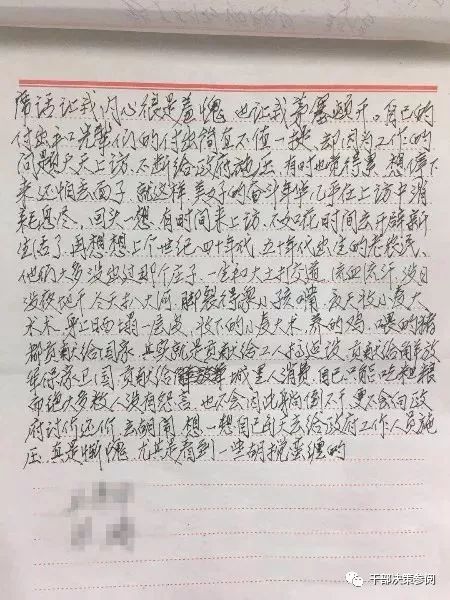 席话让我内心很是羞愧,也让我茅塞顿开。自己的
付出和先辈们的付出简直不值一提,却因为工作的
问题天天上访,不断给政府施压,有时也觉得累,想停下
来还怕丢面子,就这样,美好的奋斗年华几乎在上访中消
耗怠尽,回头一想,有时间来上访,不如花时间去开辟新
生活了,再想想上个世纪四十年代、五十年代出生的老农民、
他们大多没出过那个庄子,一生和大土打交道,流血流汗,没日
没夜地干,冬天扒大河,脚裂得像小孩嘴,夏天收小麦大
米,身上晒塌一层皮,收下的小麦大米,养的鸡、喂的猪
都贡献给国家,其实就是贡献给工人搞建设,贡献给解放
军保家卫国,贡献给城里人消费,自己只能吃米粗粮
而绝大多数人没有怨言,也不会因此胸闷不平更不会向政
府讨价还价,去胡闹,想一想自己天天去给政府工作人员施
压,真是惭愧,尤其是看到一些胡搅蛮缠的
干部决策参阅